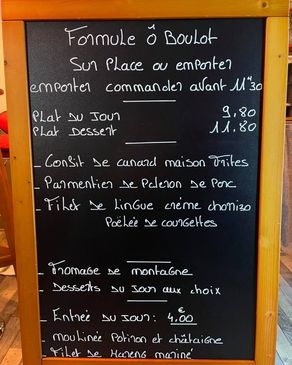 Formule Ô Boulot
Sur Place ou emporter
emporter commander avant 11H30
Plat du Jour 9,80
Plat Dessert 11,80
- Confit de canard maison Frites
- Parmentier de Paleron de Porc
- Filet de Lingue crème chorizo
Poêlée de courgettes
- Fromage de montagne
- Desserts du Jour aux choix
- Entrée du Jour : 4,00 €
- moulinée Potiron et châtaigne
Filet de Hareng mariné